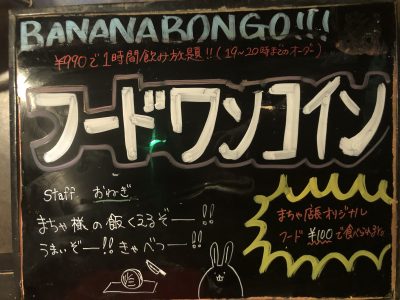 BANANABONGO!!!
¥990で1時間飲み放題!!(19~20時までのオーダー)
フードワンコイン
Staff おねぎ
まちゃ様の飯くえるぞー!!
うまいぞー!!きゃべつー!!
まちゃ店長オリジナル
フード ¥100で食べられる